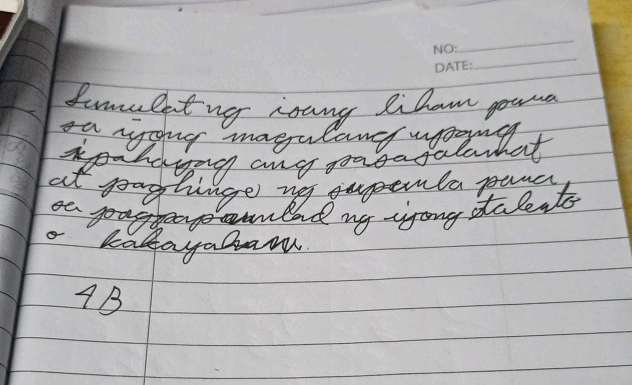 NO:
DATE:
Sumulat ng isang liham para
sa iyong magulang upang
ipahayag ang pasasalamat
at paghinge ng suporta para
sa pagpapaunlad ng iyong talento
o kakayahan.
4B